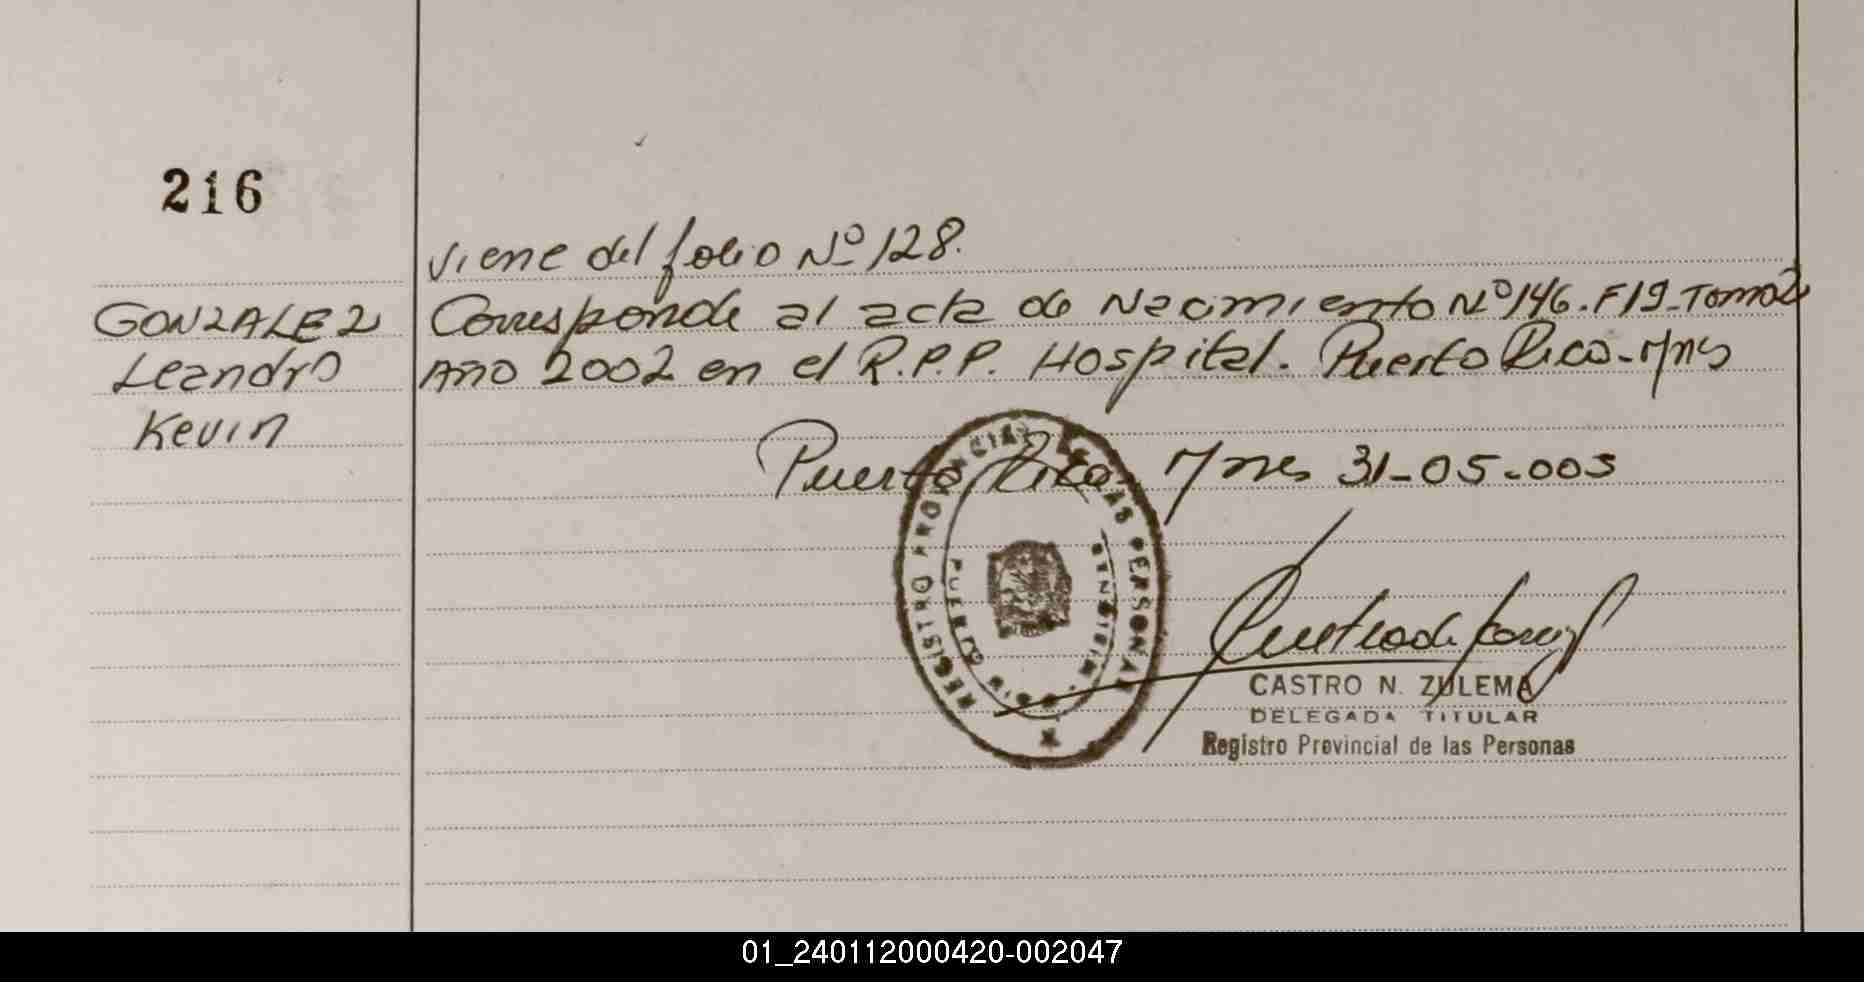 216
viene del folio Nº 128.
GONZALEZ
Leandro
Kevin
Corresponde al acta de Nacimiento Nº 146. F19_Tomo2
Año 2002 en el R.P.P. Hospital. Puerto Rico - Mnes
Puerto Rico Mnes 31-05-003
REGISTRO PROVINCIAL DE LAS PERSONAS
PUERTO RICO
MISIONES
CASTRO N. ZULEMA
DELEGADA TITULAR
Registro Provincial de las Personas
01_240112000420-002047